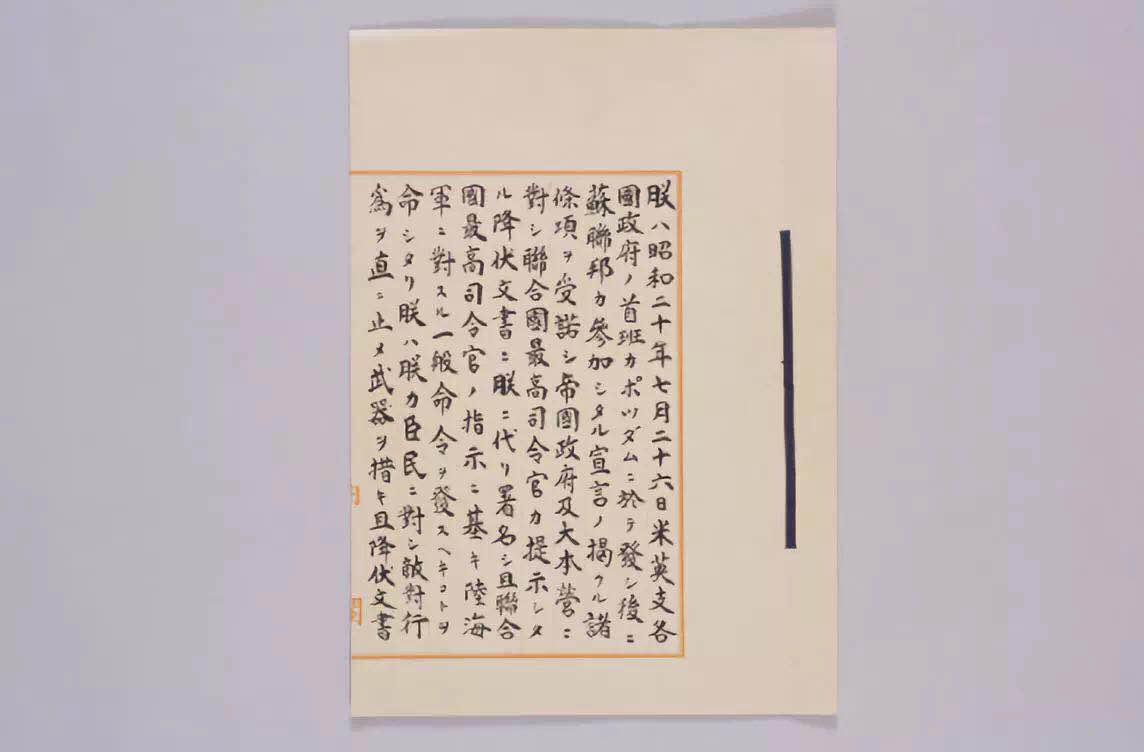 朕ハ昭和二十年七月二十六日米英支各
國政府ノ首班カポツダムニ於テ發シ後ニ
蘇聯邦カ參加シタル宣言ノ掲クル諸
條項ヲ受諾シ帝國政府及大本營ニ
對シ聯合國最高司令官カ提示シタ
ル降伏文書ニ朕ニ代リ署名シ且聯合
國最高司令官ノ指示ニ基キ陸海
軍ニ對スル一般命令ヲ發スヘキコトヲ
命シタリ朕ハ朕カ臣民ニ對シ敵對行
為ヲ直ニ止メ武器ヲ措キ且降伏文書